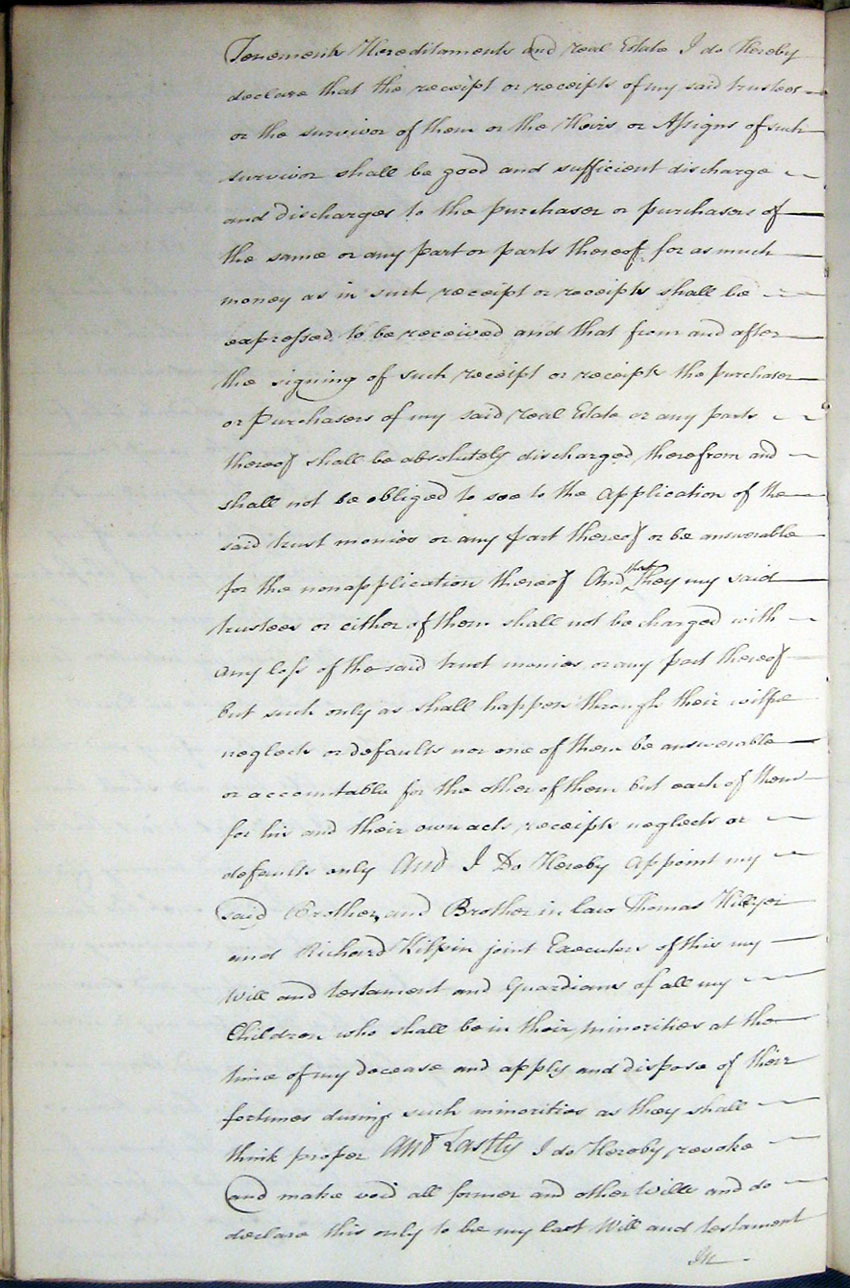 Tenements Hereditaments and real Estate I do Hereby
declare that the receipt or receipts of my said trustees
or the survivor of them or the Heirs or Assigns of such
survivor shall be good and sufficient discharge
and discharges to the purchaser or purchasers of
the same or any part or parts thereof for as much
money as in such receipt or receipts shall be
expressed to be received and that from and after
the signing of such receipt or receipts the purchaser
or purchasers of my said real Estate or any parts
thereof shall be absolutely discharged therefrom and
shall not be obliged to see to the application of the
said trust monies or any part thereof or be answerable
for the nonapplication thereof And that they my said
trustees or either of them shall not be charged with
any loss of the said trust monies or any part thereof
but such only as shall happen through their wilful
neglects or defaults nor one of them be answerable
or accountable for the other of them but each of them
for his and their own acts receipts neglects or
defaults only And I Do Hereby appoint my
said Brother, and Brother in law Thomas Hillyer
and Richard Kilpin joint Executors of this my
Will and testament and Guardians of all my
Children who shall be in their minorities at the
time of my decease and apply and dispose of their
fortunes during such minorities as they shall
think proper And Lastly I do Hereby revoke
and make void all former and other Wills and do
declare this only to be my last Will and testament
In